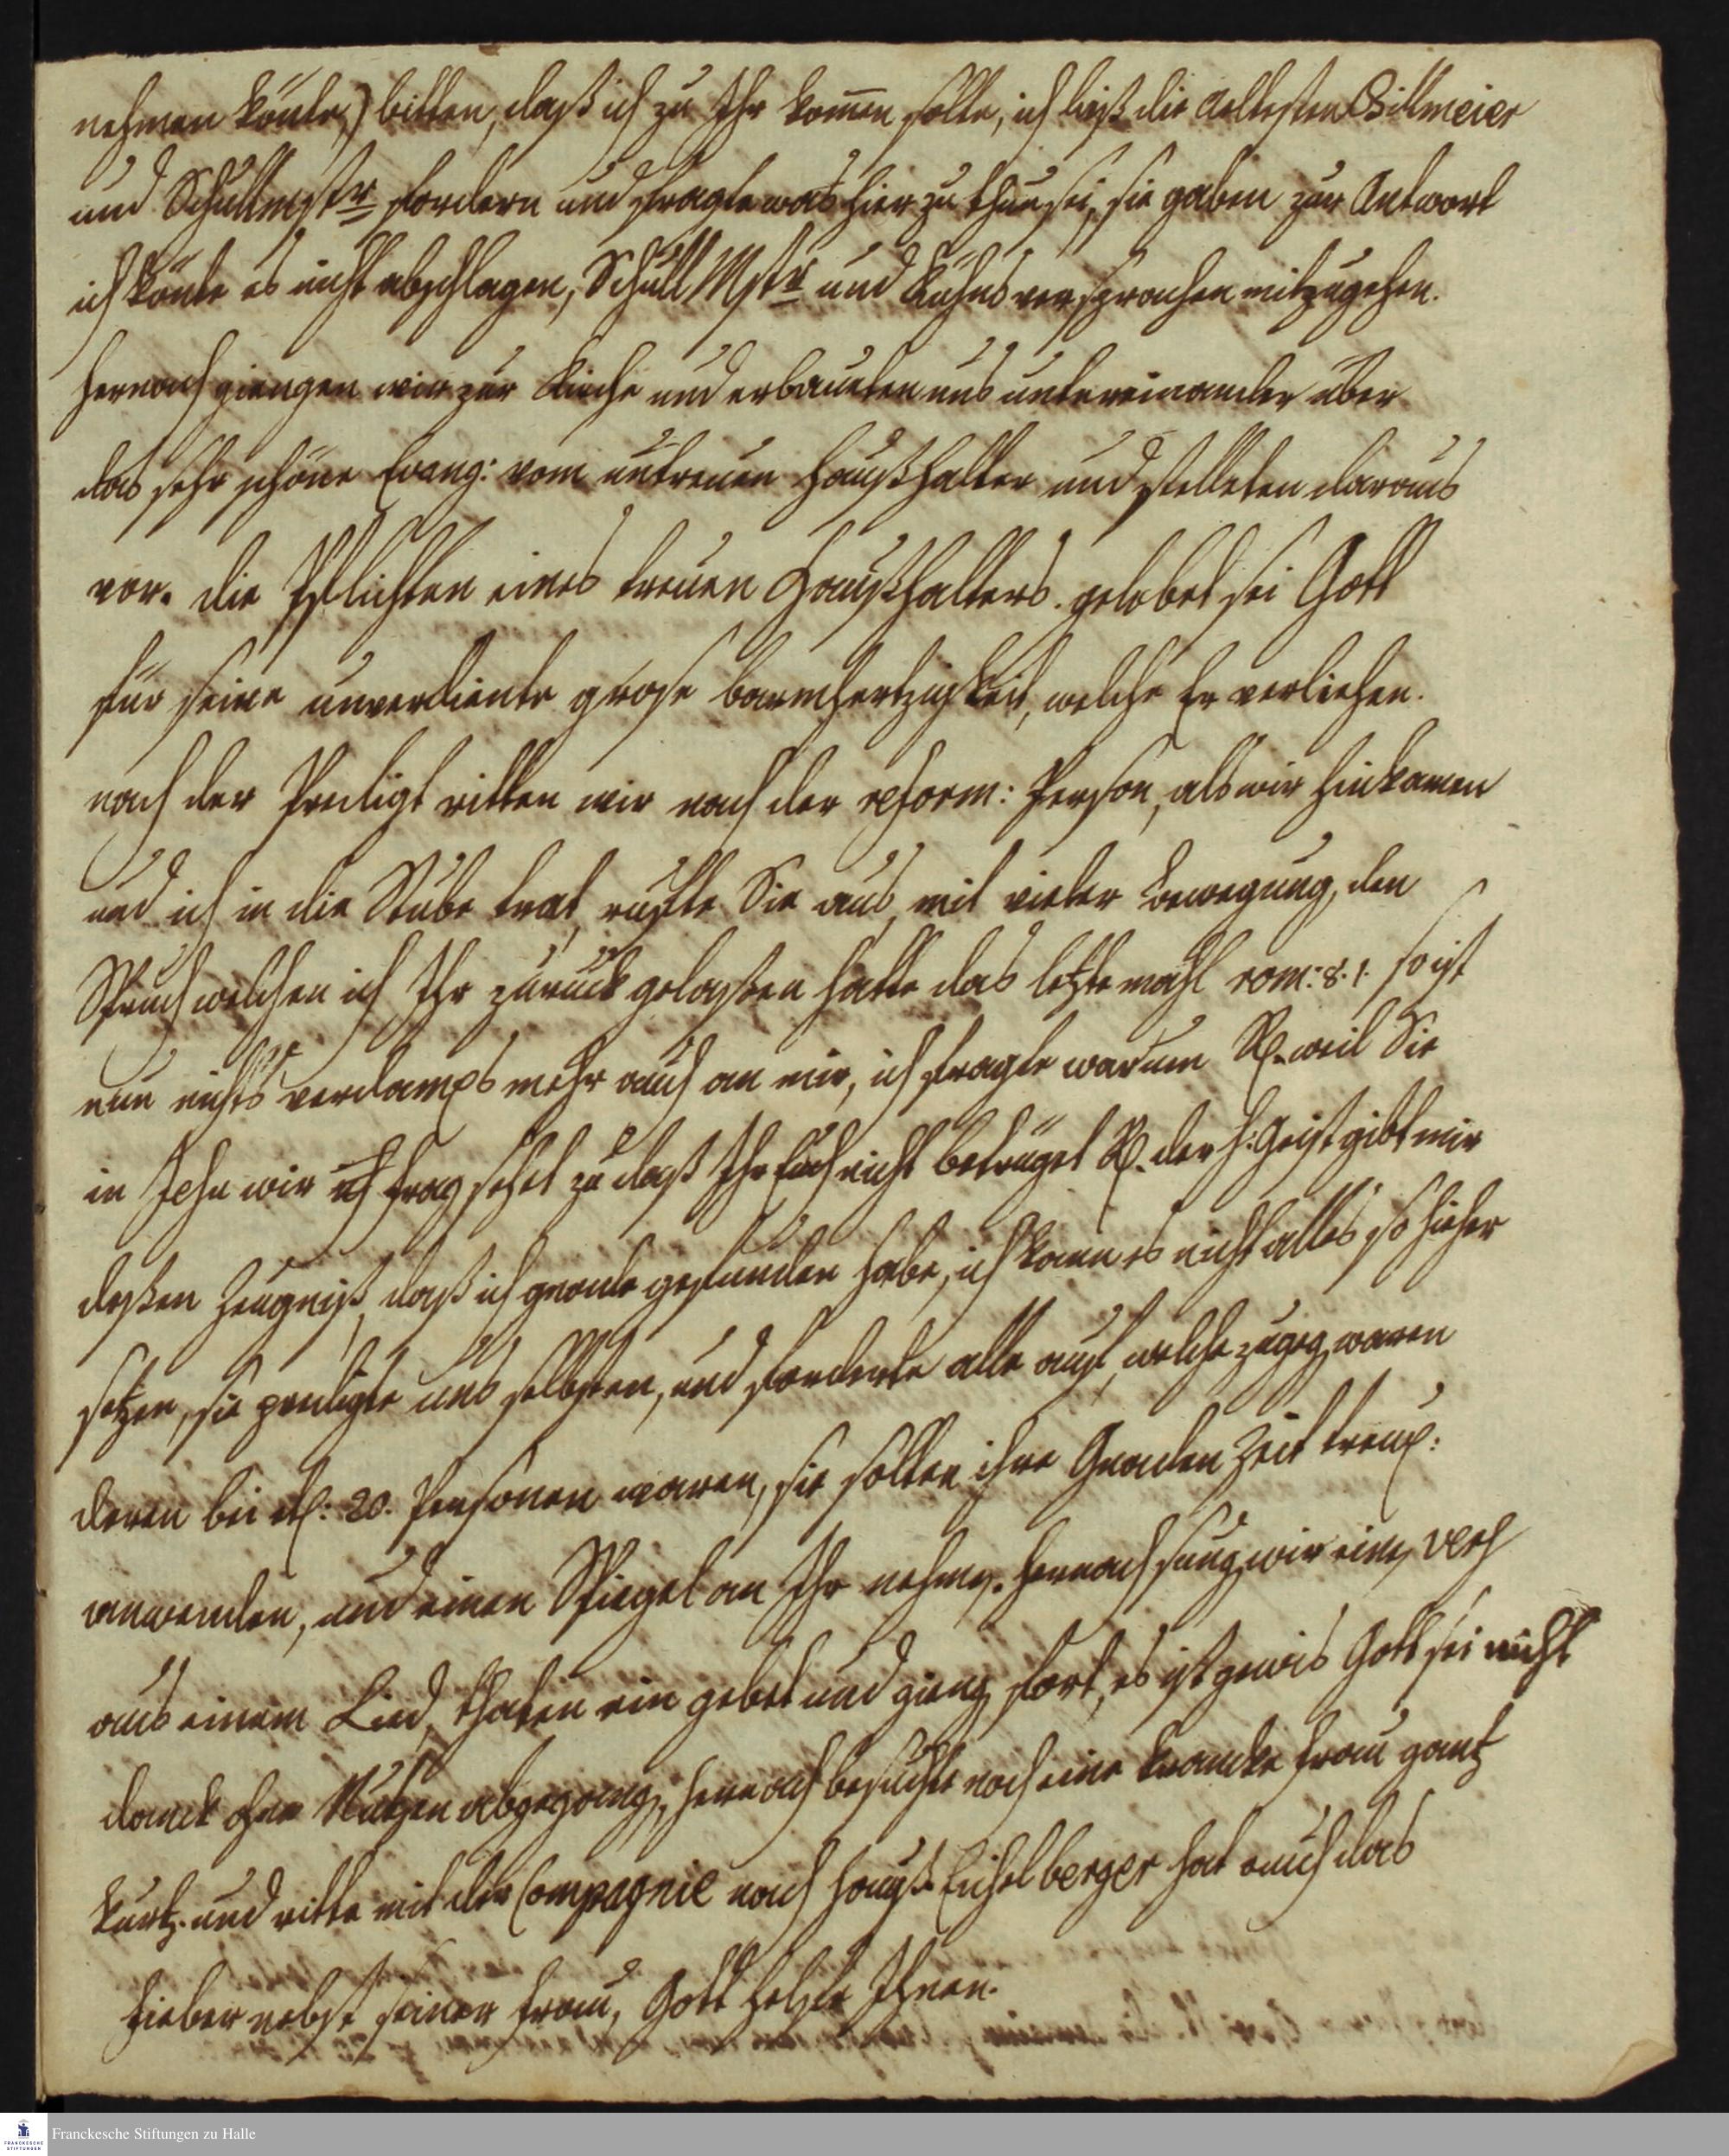 nehmen könte,) bitten, daß ich zu Ihr kom̄en solte, ich ließ die aeltesten Billmeier
und Schullmstr fordern und fragte was hier zu thun sei, sie gaben zur Antwort
ich könte es nicht abschlagen, Schull Mstr und Kuhns versprachen mitzugehen.
hernach giengen wir zur Kirche und erbaueten uns untereinander über
das sehr schöne Evang: vom untreuen Haußhalter und stelleten daraus
vor. die Pflichten eines treuen Haußhalters. gelobet sei Gott
für seine unverdiente grose barmhertzigkeit, welche Er verliehen.
nach der Predigt ritten wir nach der reform: Person, als wir hinkamen
und ich in die Stube trat, rufte Sie aus, mit vieler bewegung, den
Spruch welchen ich Ihr zurück gelaßen hatte das letzte mahl rom: 8. 1. so ist
nun nichts verdamᵱs mehr auch an mir, ich fragte warum R. weil Sie
in Jesu wir ich frag sehet zu daß Ihr Euch nicht betrüget R. der h: Geist gibt mir
deßen Zeugniß, daß ich gnade gefunden habe, ich kann es nicht alles so hieher
setzen, sie predigte uns selbsten, und forderte alle auf, welche zugeg waren
deren bei etl: 20. Personen waren, sie solten ihre Gnaden Zeit treul:
anwenden, und einen Spiegel an Ihr nehmen. hernach sung wir einen vers
aus einem Lied, thaten ein gebet und gieng fort, es ist gewis Gott sei nicht
danck ohne Nutzen abgegang, hernach besuchte noch eine krancke frau gantz
kurtz. und ritte mit der Compagnie nach hauß. Eichelberger hat auch das
fieber nebst seiner frau, Gott helfe Ihnen.
Franckesche Stiftungen zu Halle
FRANCKESCHE
STIFTUNGEN